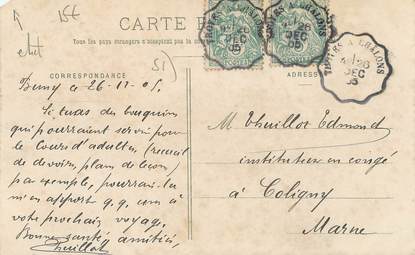 15€
etat
51)
CARTE P
Tous les pays étrangers n'acceptent pas la
CORRESPONDANCE
ADRES
TROYES A CHALONS
26
DEC
05
POSTES
ce 26-12-05.
Si tu as des bouquins
qui pourraient servir pour
le Cours d'adultes, (recueil
de devoirs, plans de leçon)
par exemple, pourrais-tu
m'en apport q.q. uns à
votre prochain voyage.
Bonne santé, amitiés,
Thuillot
M. Thuillot Edmond
instituteur en congé
à Coligny
Marne